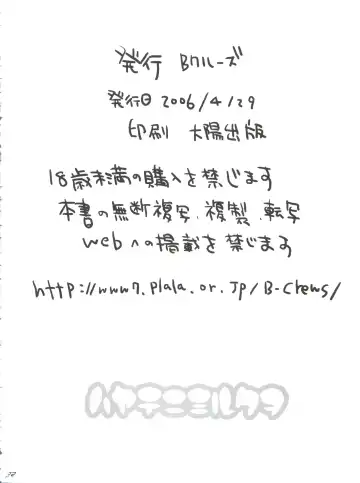 発行 Bクルーズ
発行日 2006/4/29
印刷 大陽出版
18歳未満の購入を禁じます
本書の無断複写、複製、転写
webへの掲載を禁じます
http://www7.plala.or.jp/B-crews/
ハヤテニミルクヲ